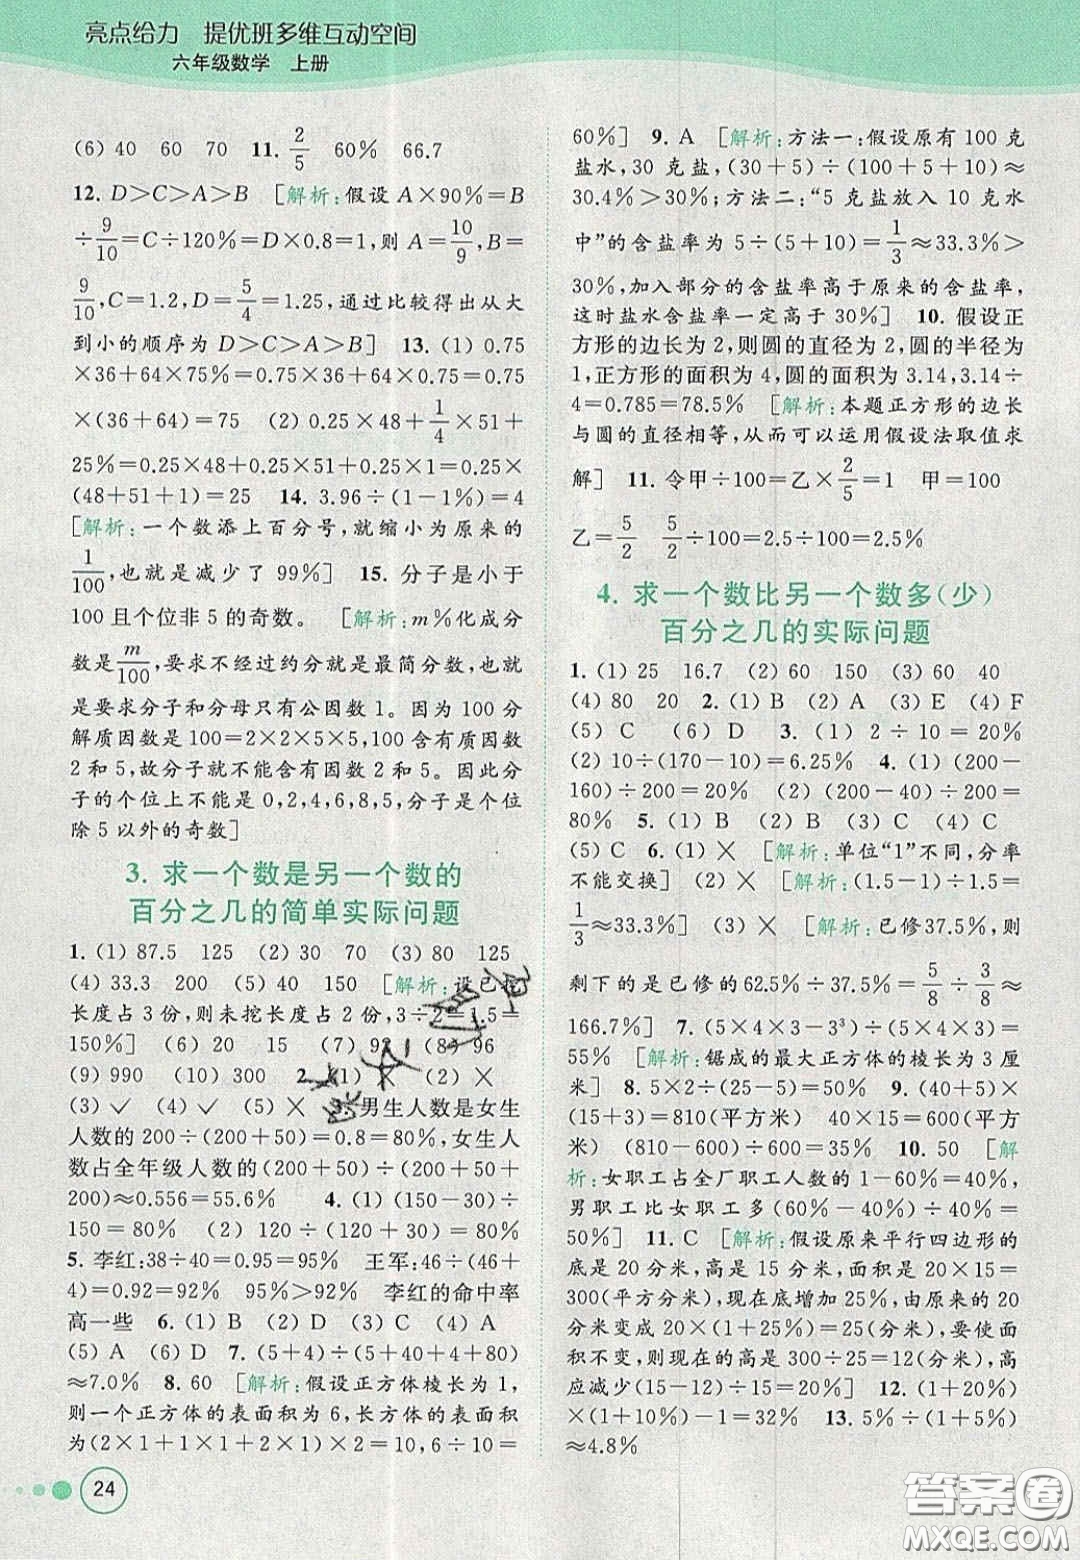 亮点给力 提优班多维互动空间
六年级数学 上册
(6) 40 60 70 11. 2/5 60% 66.7
12. D>C>A>B [解析:假设 A×90%=B
÷9/10=C÷120%=D×0.8=1,则 A=10/9,B=
9/10,C=1.2,D=5/4=1.25,通过比较得出从大
到小的顺序为 D>C>A>B] 13. (1) 0.75
×36+64×75%=0.75×36+64×0.75=0.75
×(36+64)=75 (2) 0.25×48+1/4×51+
25%=0.25×48+0.25×51+0.25×1=0.25×
(48+51+1)=25 14. 3.96÷(1-1%)=4
[解析:一个数添上百分号,就缩小为原来的
1/100,也就是减少了 99%] 15. 分子是小于
100 且个位非 5 的奇数。 [解析:m%化成分
数是m/100,要求不经过约分就是最简分数,也就
是要求分子和分母只有公因数 1。因为 100 分
解质因数是 100=2×2×5×5,100 含有质因数
2 和 5,故分子就不能含有因数 2 和 5。因此分
子的个位上不能是 0,2,4,6,8,5,分子是个位
除 5 以外的奇数]
3. 求一个数是另一个数的
百分之几的简单实际问题
1. (1) 87.5 125 (2) 30 70 (3) 80 125
(4) 33.3 200 (5) 40 150 [解析:设已挖
长度占 3 份,则未挖长度占 2 份,3÷2=1.5=
150%] (6) 20 15 (7) 92 (8) 96
(9) 990 (10) 300 2. (1) × (2) ×
(3) ✓ (4) ✓ (5) × 3. 男生人数是女生
人数的 200÷(200+50)=0.8=80%,女生人
数占全年级人数的(200+50)÷(200+50+
200)≈0.556=55.6% 4. (1) (150-30)÷
150=80% (2) 120÷(120+30)=80%
5. 李红:38÷40=0.95=95% 王军:46÷(46+
4)=0.92=92% 95%>92% 李红的命中率
高一些 6. (1) B (2) D (3) B (4) A
(5) A (6) D 7. (5+4)÷(5+40+4+80)
≈7.0% 8. 60 [解析:假设正方体棱长为 1,
则一个正方体的表面积为 6,长方体的表面积为
(2×1+1×1+2×1)×2=10,6÷10=
24
60%] 9. A [解析:方法一:假设原有 100 克
盐水,30 克盐,(30+5)÷(100+5+10)≈
30.4%>30%;方法二:“5 克盐放入 10 克水
中”的含盐率为 5÷(5+10)=1/3≈33.3%>
30%,加入部分的含盐率高于原来的含盐率,
这时盐水含盐率一定高于 30%] 10. 假设正
方形的边长为 2,则圆的直径为 2,圆的半径为
1,正方形的面积为 4,圆的面积为 3.14,3.14÷
4=0.785=78.5% [解析:本题正方形的边长
与圆的直径相等,从而可以运用假设法取值求
解] 11. 令甲÷100=乙×2/5=1 甲=100
乙=5/2 5/2÷100=2.5÷100=2.5%
4. 求一个数比另一个数多(少)
百分之几的实际问题
1. (1) 25 16.7 (2) 60 150 (3) 60 40
(4) 80 20 2. (1) B (2) A (3) E (4) F
(5) C (6) D 3. (1) 2÷10=20%
(2) 10÷(170-10)=6.25% 4. (1) (200-
160)÷200=20% (2) (200-40)÷200=
80% 5. (1) B (2) B (3) A (4) C
(5) C 6. (1) × [解析:单位“1”不同,分率
不能交换] (2) × [解析:(1.5-1)÷1.5=
1/3≈33.3%] (3) × [解析:已修37.5%,则
剩下的是已修的 62.5%÷37.5%=5/8÷3/8≈
166.7%] 7. (5×4×3-3³)÷(5×4×3)=
55% [解析:锯成的最大正方体的棱长为 3 厘
米] 8. 5×2÷(25-5)=50% 9. (40+5)×
(15+3)=810(平方米) 40×15=600(平方
米) (810-600)÷600=35% 10. 50 [解
析:女职工占全厂职工人数的 1-60%=40%,
男职工比女职工多(60%-40%)÷40%=
50%] 11. C [解析:假设原来平行四边形的
底是 20 分米,高是 15 分米,面积是 20×15=
300(平方分米),现在底增加 25%,由原来的 20
分米变成 20×(1+25%)=25(分米),要使面
积不变,则现在的高是 300÷25=12(分米),高
应减少(15-12)÷15=20%] 12. (1+20%)
×(1+10%)-1=32% 13. 5%÷(1+5%)
≈4.8%
答案圈
MXQE.COM